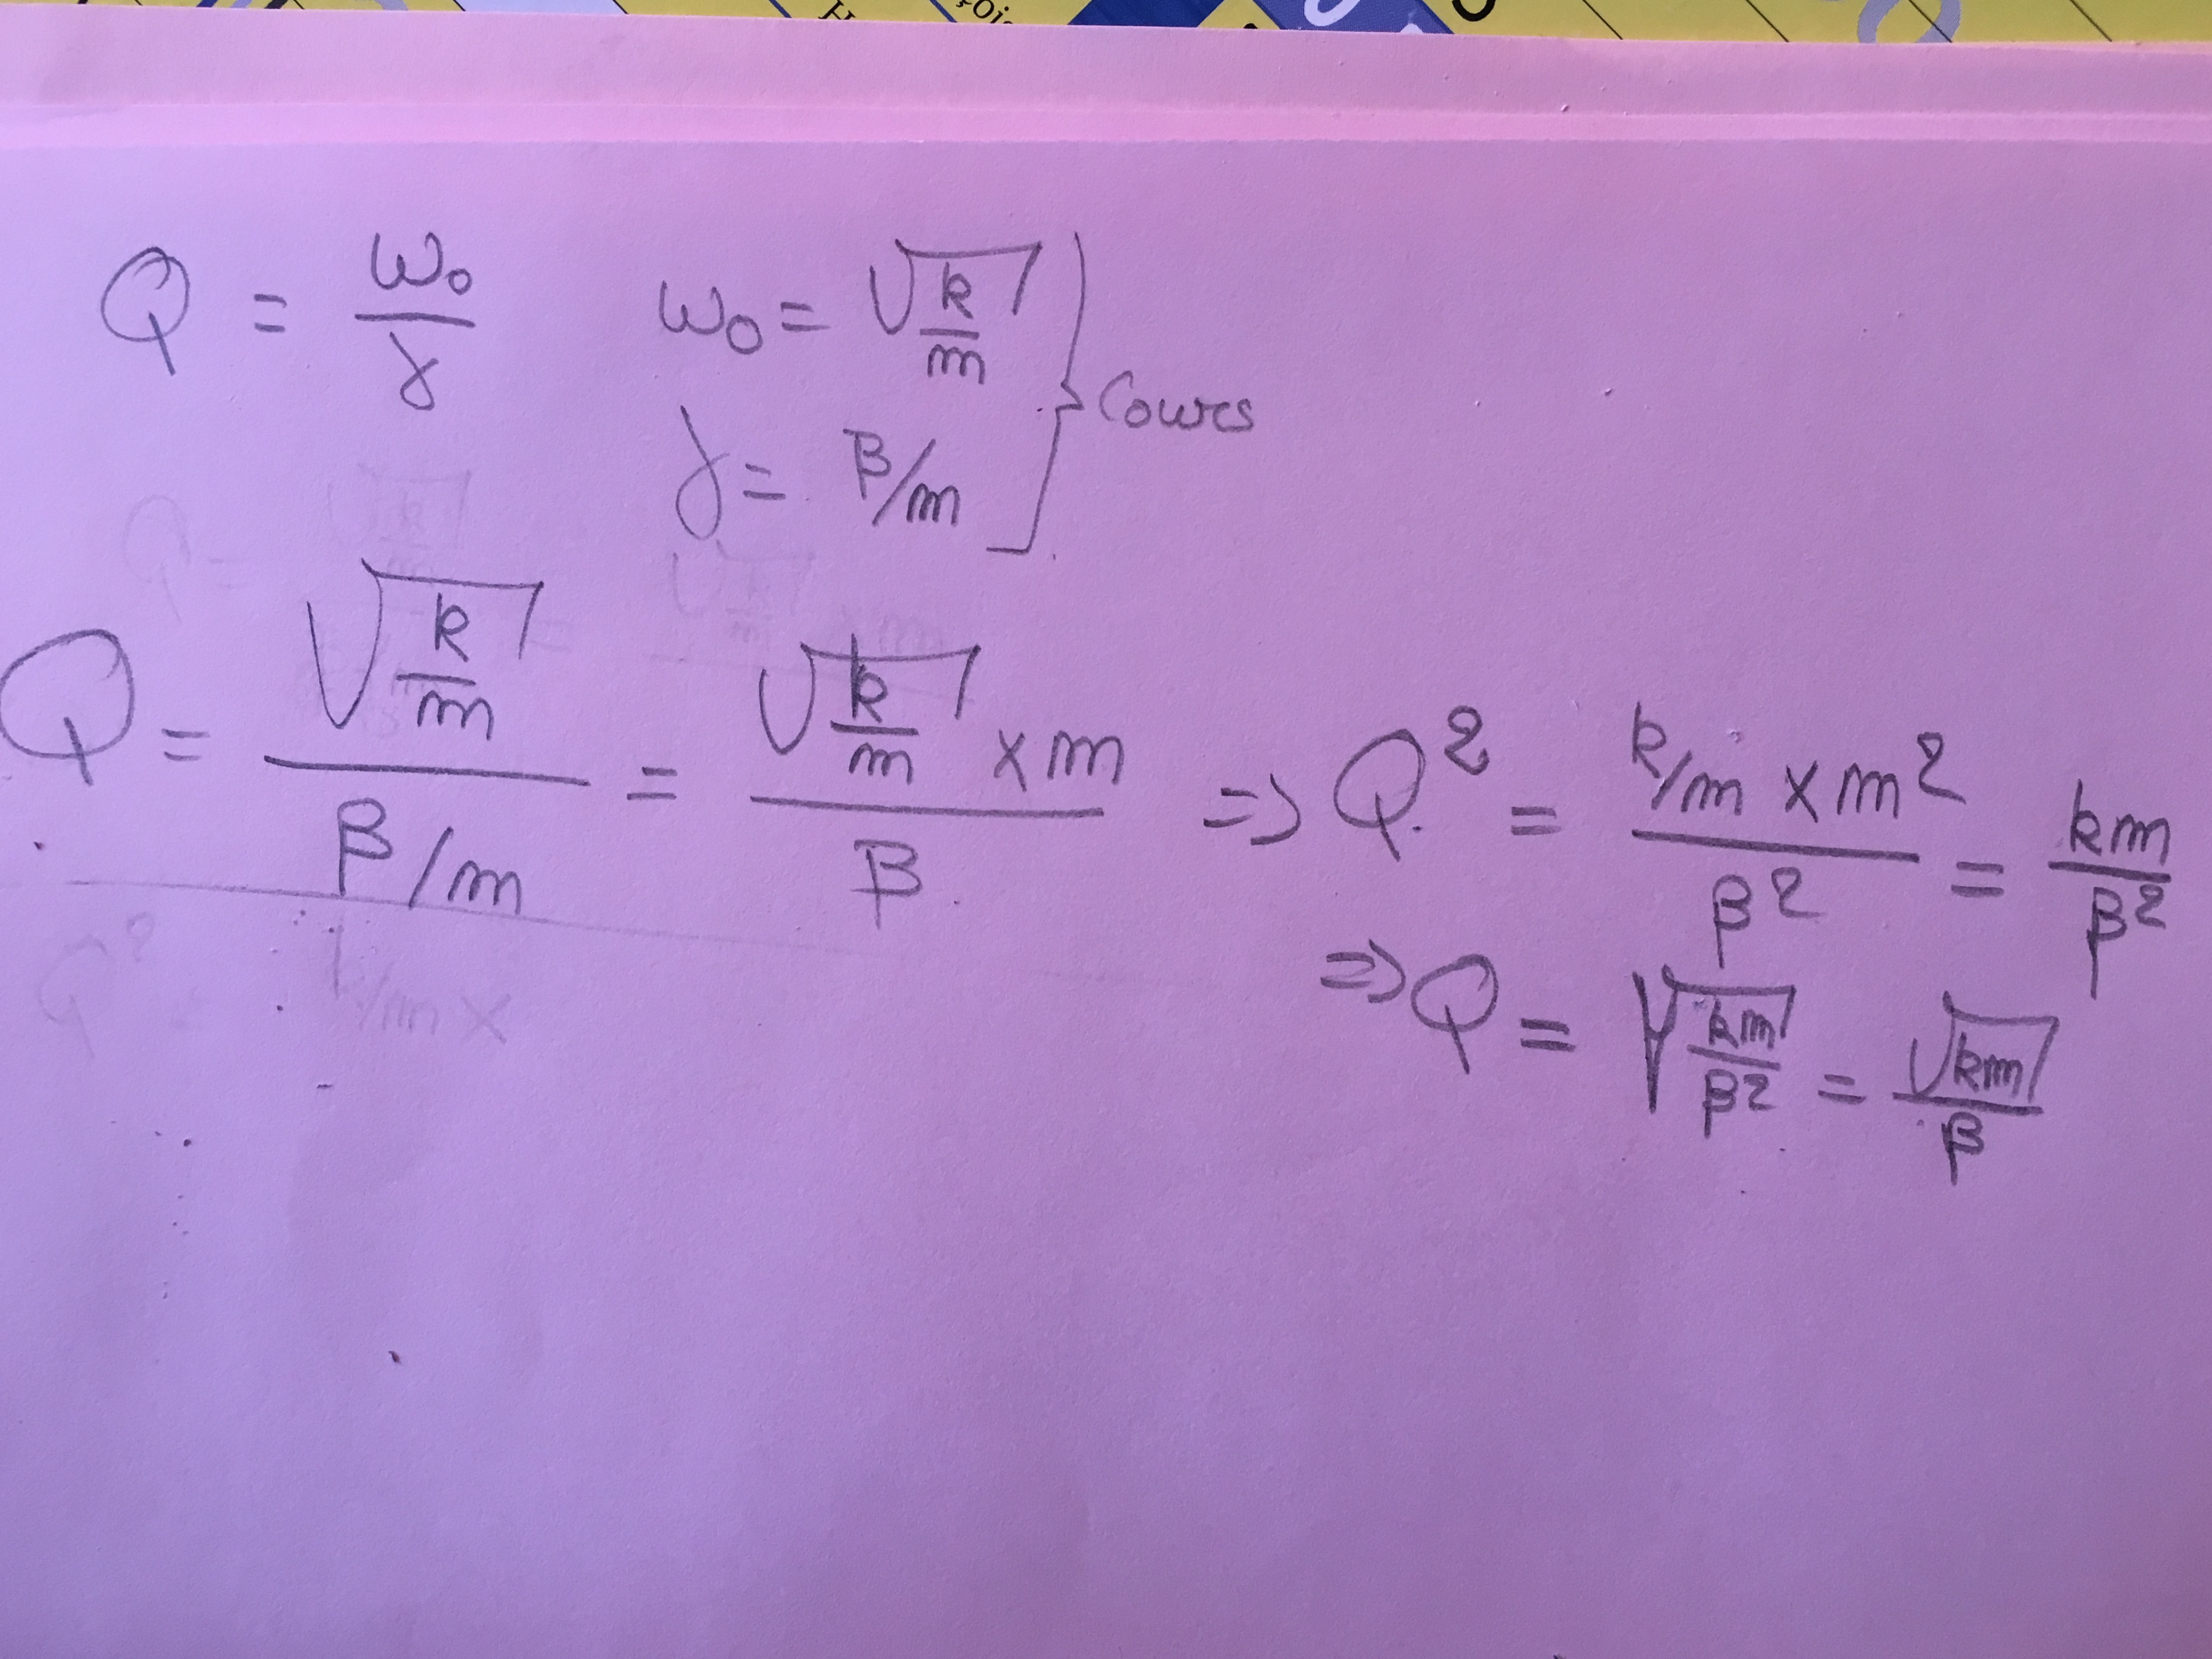 Q = ω₀/γ   ω₀ = √(k/m)
γ = β/m   } Cours
Q = √(k/m) / (β/m) = (√(k/m) × m) / β ⇒ Q² = (k/m × m²) / β² = km/β²
⇒ Q = √(km/β²) = √(km)/β